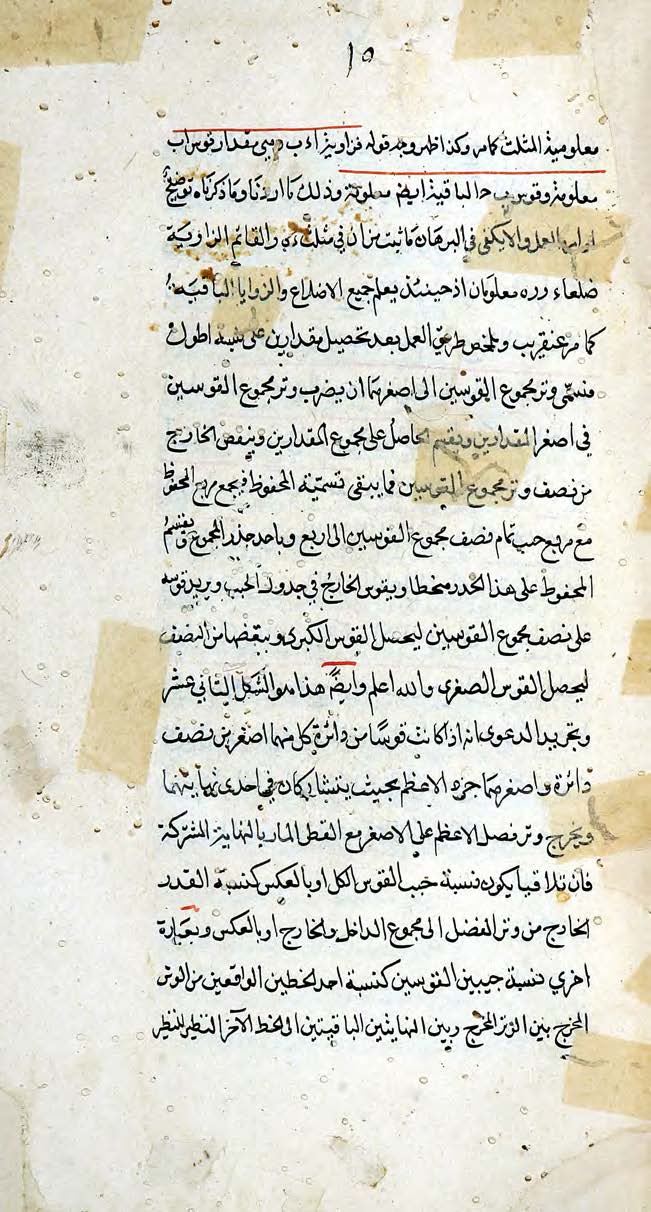 ١٥
معلومية المثلث كما مر وكذا ظهر وجه قوله فزاوية ا ء ب وهي مقدار قوس اب
معلومة وقوس ب حـ الباقية ايضا معلومة وذلك ما اردنا وما ذكرناه توضيح
العمل والا يكفى في البرهان ما ثبت من ان في مثلث ء ر ه القائم الزاوية
ضلعا ء ر ر ه معلومان اذ حينئذ يعلم جميع الاضلاع والزوايا الباقية
كما مر عنقريب وتلخص طريق العمل بعد تحصيل مقدارين على نسبة اطول
قسمى وتر مجموع القوسين الى اصغرهما ان يضرب وتر مجموع القوسين
في اصغر المقدارين ويقسم الحاصل على مجموع المقدارين وينقص الخارج
من نصف وتر مجموع القوسين فما يبقى نسميه المحفوظ فيجمع مربع المحفوظ
مع مربع جيب تمام نصف مجموع القوسين الى اربع وياخد جذر المجموع ويقسم
المحفوظ على هذا الجدر منحطا ويقوس الخارج في جدول الجيب ويزيد قوسه
على نصف مجموع القوسين ليحصل القوس الكبرى وينقصها من النصف
ليحصل القوس الصغرى والله اعلم وايضا هذا هو الشكل الثاني عشر
وتجريد الدعوى انه اذا كانت قوسا من دائرة كل منهما اصغر من نصف
دائرة واصغرهما جزء الاعظم بحيث يتشاركان في احدى نهايتهما
ويخرج وتر فضل الاعظم على الاصغر مع القطر المار بالنهاية المشتركة
فان تلاقيا يكون نسبة جيب القوس الكل او بالعكس كنسبة القدر
الخارج من وتر الفضل الى مجموع الداخل والخارج او بالعكس وبعبارة
اخري نسبة جيبين القوسين كنسبة احد الخطين الواقعين من الوتر
المخرج بين الوتر المخرج وبين النهايتين الباقيتين الى الخط الآخر النظير للنظير